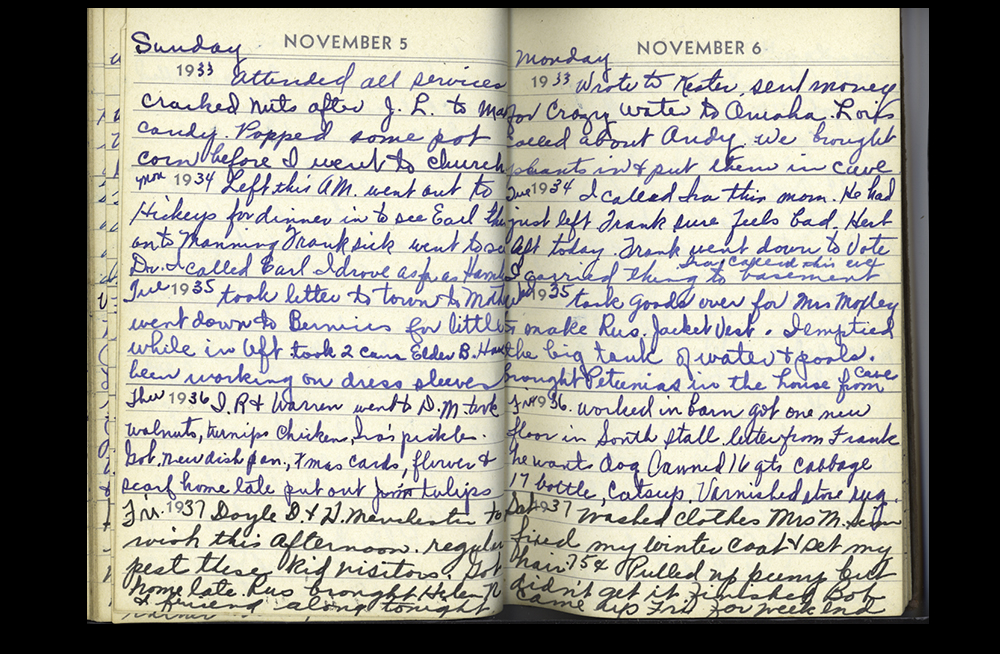 Sunday
NOVEMBER 5
1933 attended all services
cracked nuts after J. L. to
candy. Popped some pop
corn before I went to church
Mon 1934 Left this AM. went out to
Hickeys for dinner in to see Earl then
on to Manning Frank sick went to see
Dr. I called Earl I drove as far as
Tue 1935 took letter to town to
went down to Bernies for little
while in aft took 2 cans Elder B. Have
been working on dress sleeves
Thu 1936 I, R & Warren went to D.M took
walnuts, turnips chicken, Ira's pickle.
Got, new dish pan, Xmas cards, flower &
scarf home late put out tulips
Fri. 1937 Doyle D. & H. Manchester to
this afternoon. regular
pest these kid visitors. Got
home late Rus brought Helen R
& friend along tonight
Monday
NOVEMBER 6
1933 Wrote to Kester, sent money
for Crazy water to Omaha. Lois
called about Andy. we brought
plants in & put them in cave
Tue 1934 I called Ira this morn. He had
just left Frank sure feels bad. Hert
aft today. Frank went down to Vote
Ira called this eve
I carried thing to basement
Wed 1935 took goods over for Mrs Mopley
to make Rus. Jacket Vest. I emptied
the big tank of water & pools.
Cave
brought Petunias in the house from
Fri 1936. worked in barn got one new
floor in South stall. letter from Frank
he wants dog Canned 16 qts cabbage
17 bottle, catsup. Varnished store rug.
Sat 1937 Washed clothes Mrs M.
fixed my Winter coat & set my
hair 75¢ Pulled up pump but
didn't get it finished Bob
came up Fri for week end